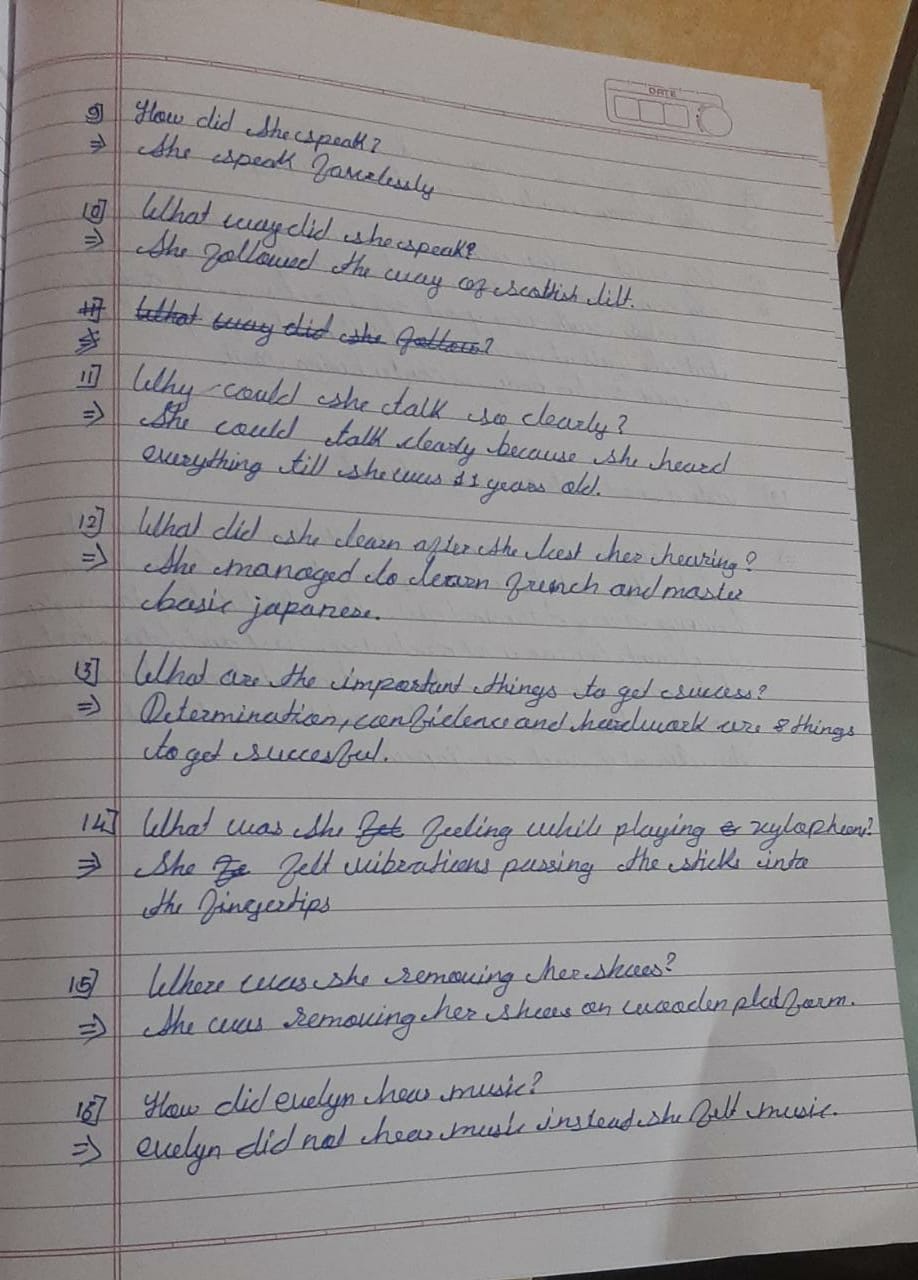 DATE
9] How did she speak?
⇒ She speak flawlessly
10] What way did she speak?
⇒ She followed the way of scottish lilt.
11] What way did she follow?
⇒
11] Why could she talk so clearly?
⇒ She could talk clearly because she heard
everything till she was 11 years old.
12] What did she learn after she lost her hearing?
⇒ She managed to learn french and master
basic japanese.
13] What are the important things to get success?
⇒ Determination, confidence and hardwork are things
to get succesful.
14] What was she feeling while playing xylophone?
⇒ She felt vibrations passing the sticks into
the fingertips
15] Where was she removing her shoes?
⇒ She was removing her shoes on wooden platform.
16] How did evelyn hear music?
⇒ evelyn did not hear music instead she felt music.